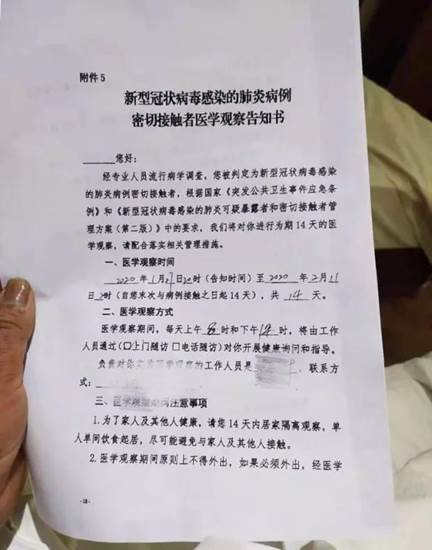 附件5
新型冠状病毒感染的肺炎病例
密切接触者医学观察告知书
______您好：
经专业人员流行病学调查，您被判定为新型冠状病毒感染
的肺炎病例密切接触者，根据国家《突发公共卫生事件应急条
例》和《新型冠状病毒感染的肺炎可疑暴露者和密切接触者管
理方案（第二版）》中的要求，我们将对你进行为期14天的医
学观察，请配合落实相关管理措施。
一、医学观察时间
2020年1月27日 时（告知时间）至2020年2月11
日 时（自您末次与病例接触之日起14天），共14天。
二、医学观察方式
医学观察期间，每天上午 时和下午 时，将由工作
人员通过（□上门随访 □电话随访）对你开展健康询问和指导。
负责对你 医学观察的工作人员是 ，联系方
式：
三、医学观察期间注意事项
1.为了家人及其他人健康，请您14天内居家隔离观察，单
人单间饮食起居，尽可能避免与家人及其他人接触。
2.医学观察期间原则上不得外出，如果必须外出，经医学